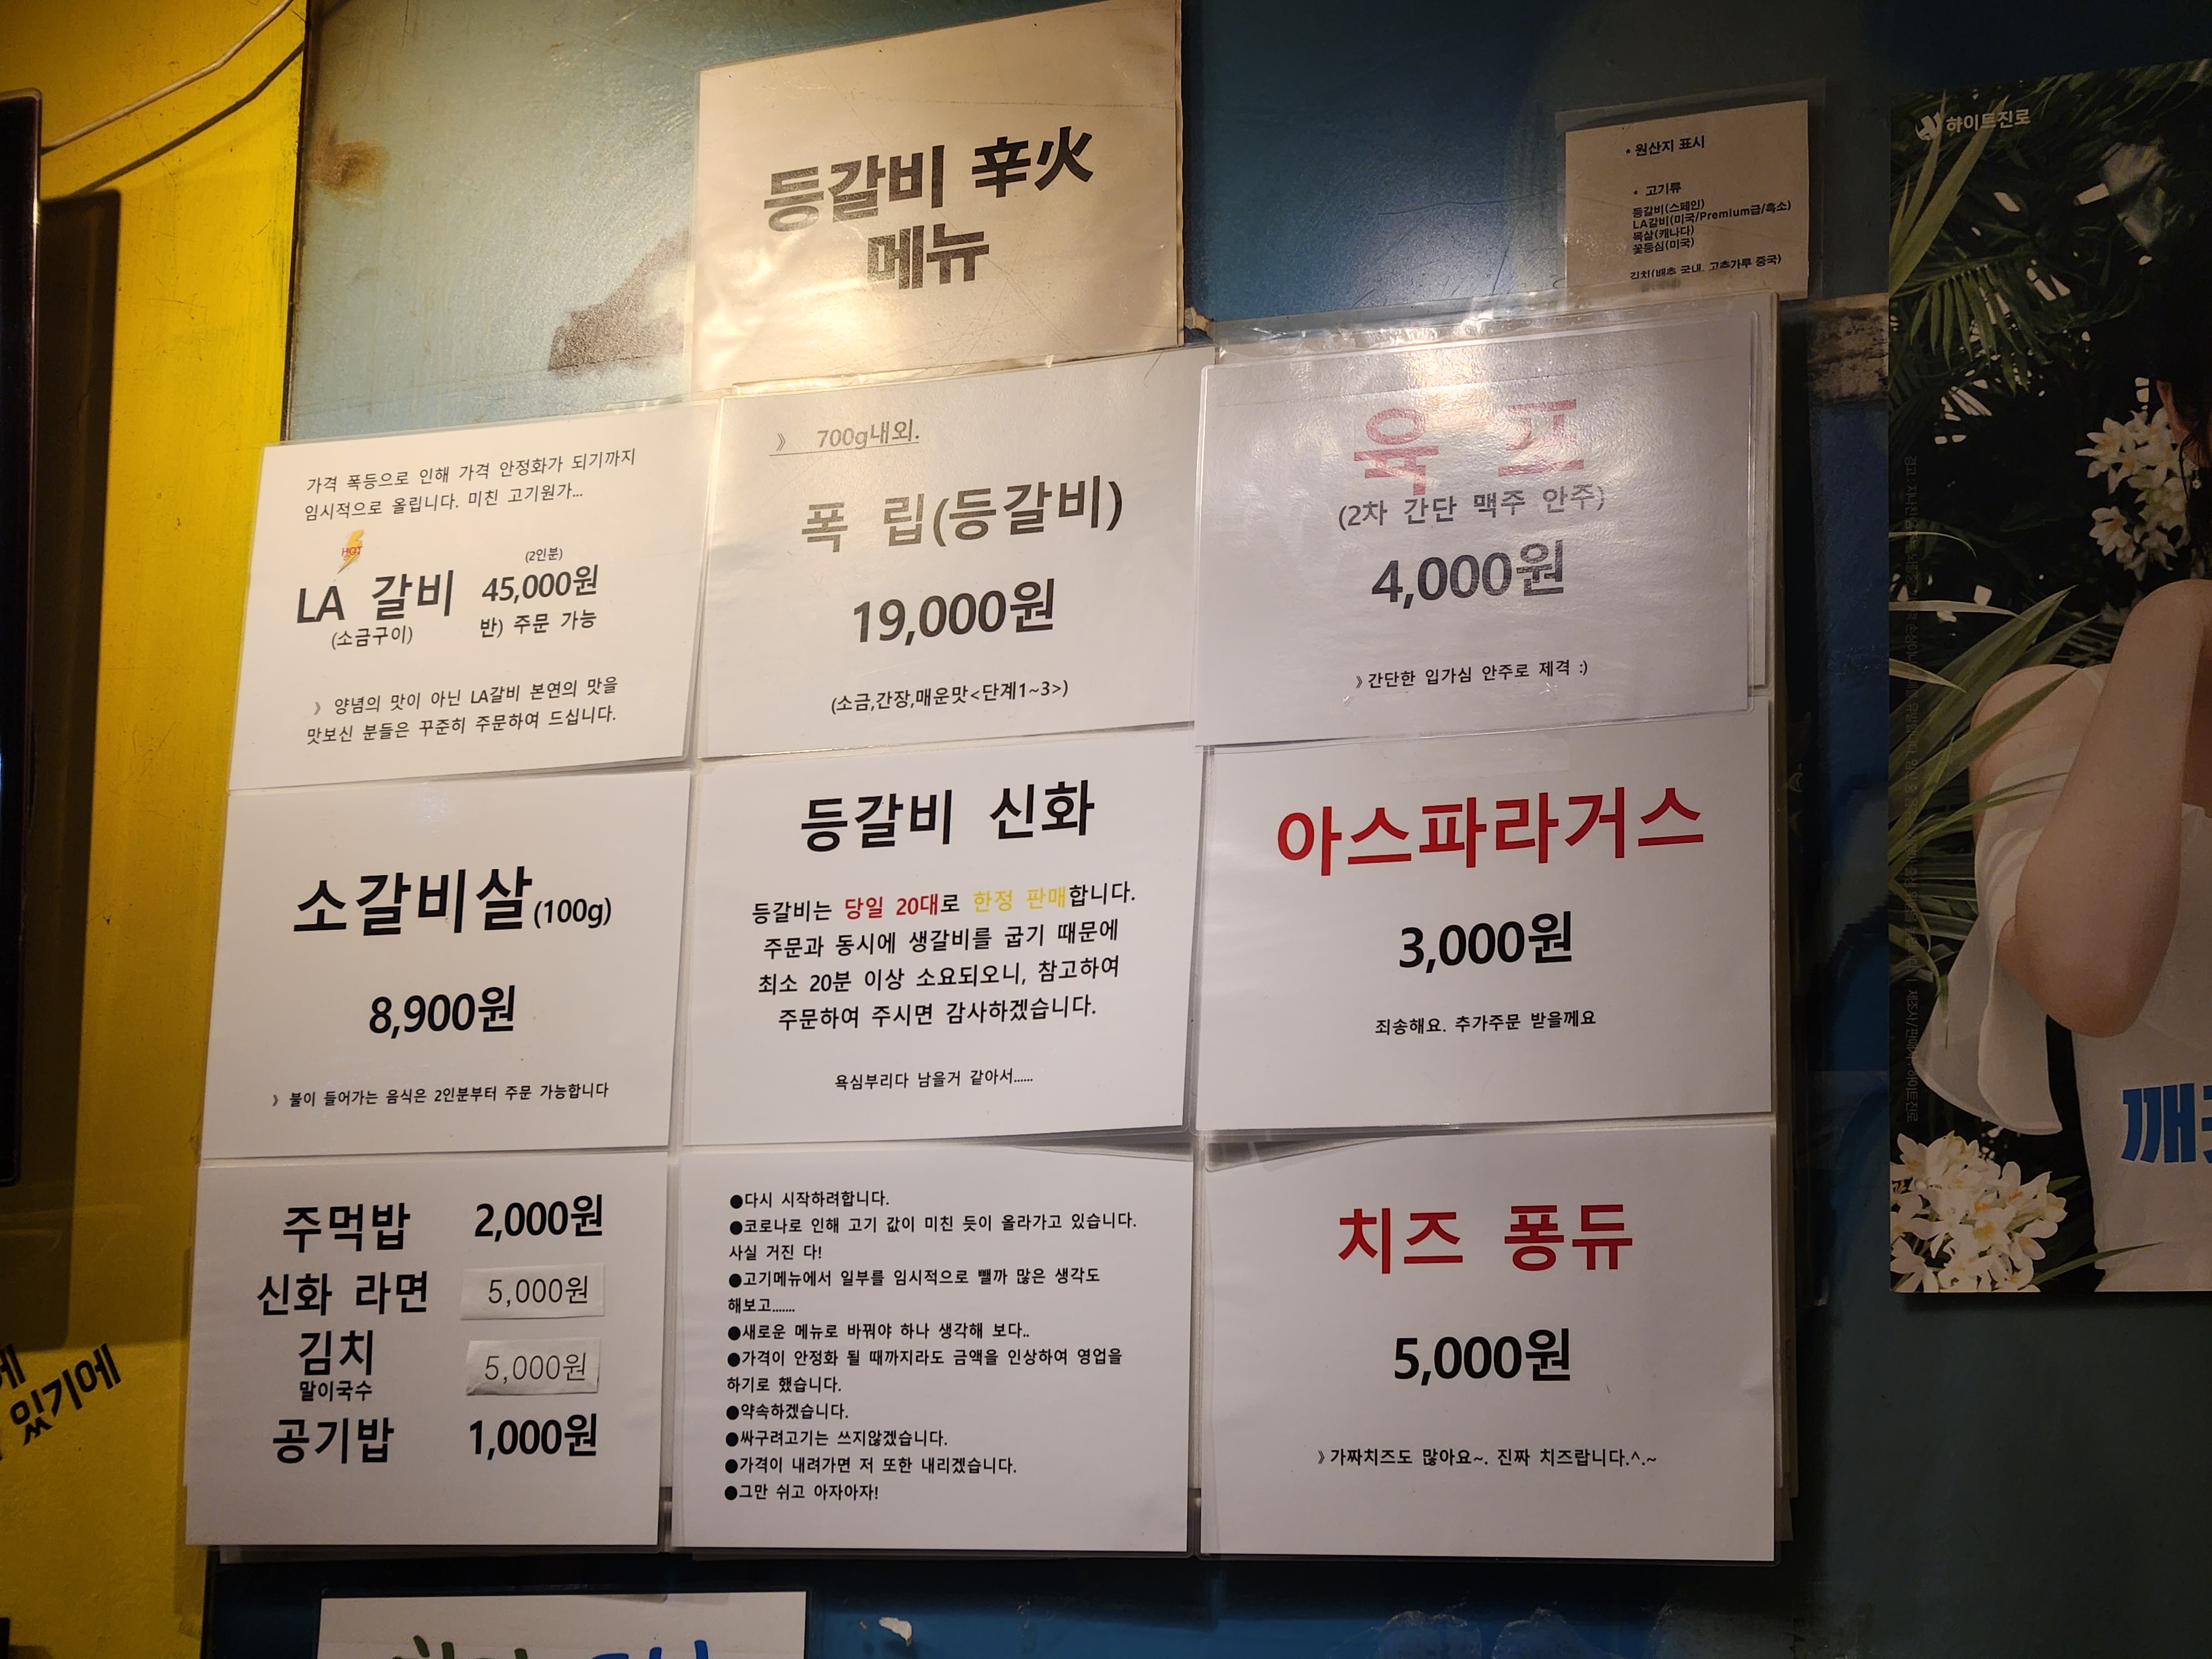 등갈비 辛火
메뉴
하이트진로
• 원산지 표시
• 고기류
등갈비(스페인)
LA갈비(미국/Premium급/흑소)
목살(캐나다)
꽃등심(미국)
김치(배추 국내, 고추가루 중국)
가격 폭등으로 인해 가격 안정화가 되기까지
임시적으로 올립니다. 미친 고기원가...
HOT
(2인분)
LA 갈비 45,000원
(소금구이) 반) 주문 가능
》 양념의 맛이 아닌 LA갈비 본연의 맛을
맛보신 분들은 꾸준히 주문하여 드십니다.
》 700g내외.
폭 립(등갈비)
19,000원
(소금,간장,매운맛<단계1~3>)
육 포
(2차 간단 맥주 안주)
4,000원
》간단한 입가심 안주로 제격 :)
소갈비살(100g)
8,900원
》 불이 들어가는 음식은 2인분부터 주문 가능합니다
등갈비 신화
등갈비는 당일 20대로 한정 판매합니다.
주문과 동시에 생갈비를 굽기 때문에
최소 20분 이상 소요되오니, 참고하여
주문하여 주시면 감사하겠습니다.
욕심부리다 남을거 같아서......
아스파라거스
3,000원
죄송해요. 추가주문 받을께요
주먹밥 2,000원
신화 라면 5,000원
김치
말이국수 5,000원
공기밥 1,000원
●다시 시작하려합니다.
●코로나로 인해 고기 값이 미친 듯이 올라가고 있습니다.
사실 거진 다!
●고기메뉴에서 일부를 임시적으로 뺄까 많은 생각도
해보고.......
●새로운 메뉴로 바꿔야 하나 생각해 보다..
●가격이 안정화 될 때까지라도 금액을 인상하여 영업을
하기로 했습니다.
●약속하겠습니다.
●싸구려고기는 쓰지않겠습니다.
●가격이 내려가면 저 또한 내리겠습니다.
●그만 쉬고 아자아자!
치즈 퐁듀
5,000원
》가짜치즈도 많아요~. 진짜 치즈랍니다.^.~
있기에